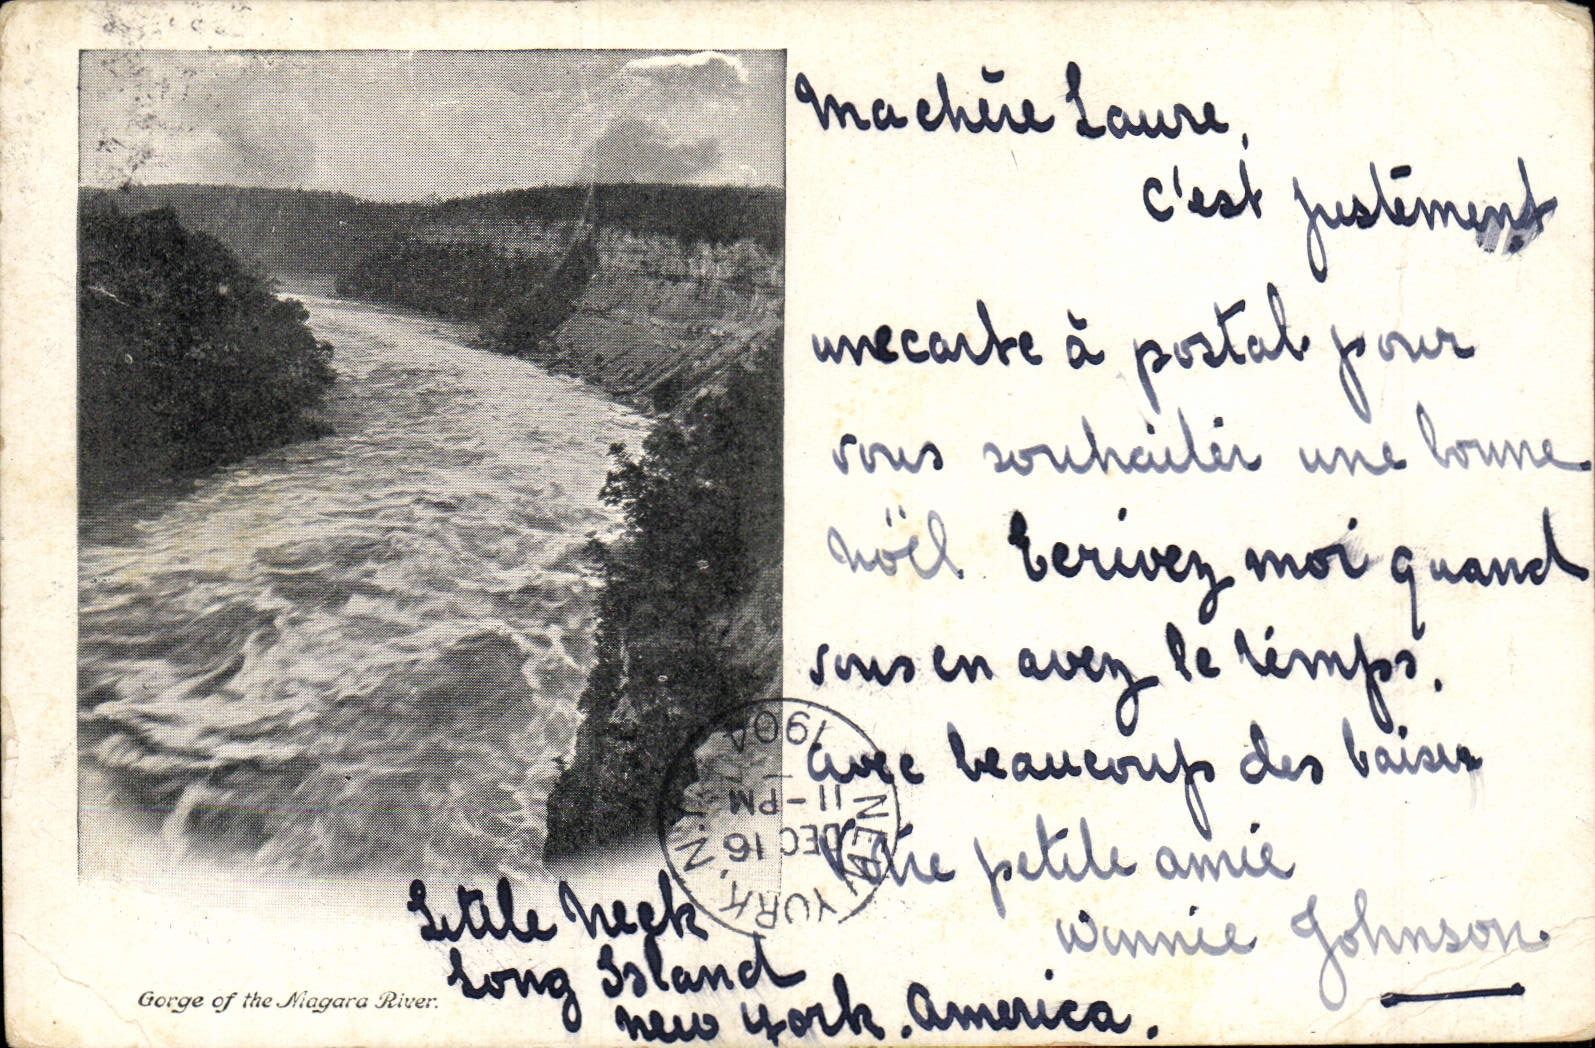 Ma chère Laure,
c'est justément
une carte à postal pour
vous souhaitér une bonne
nöel. Ecrivez moi quand
vous en avez le témps.
avec beaucoup des baiser
Votre petite amie
Winnie Johnson.
Little Neck
Long Island
New York. America.
Gorge of the Niagara River.
NEW YORK, N.Y.
DEC 16
11-PM
190A